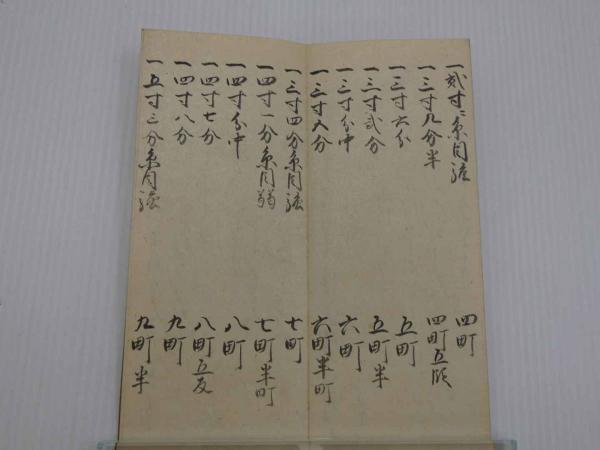 一貳寸二糸目強 四町
一三寸九分半 四町五段
一三寸六分 五町
一三寸貳分 五町半
一三寸分中 六町
一三寸八分 六町半町
一三寸四分糸目強 七町
一四寸一分糸目弱 七町半町
一四寸分中 八町
一四寸七分 八町五反
一四寸八分 九町
一五寸三分糸目強 九町半